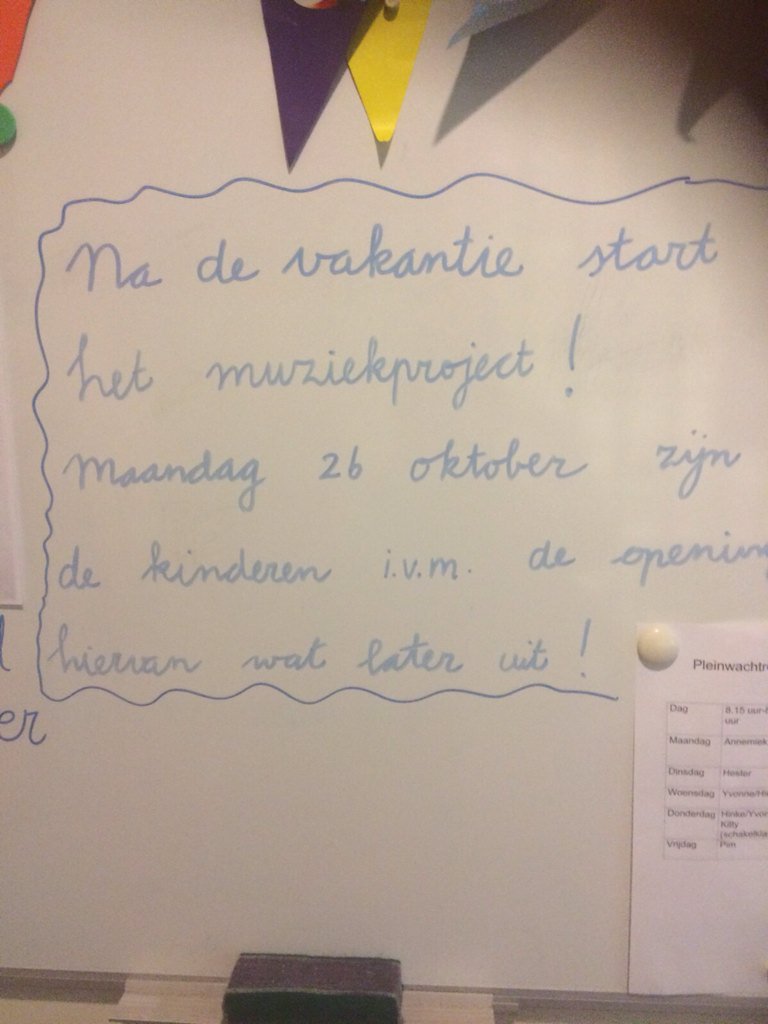 Na de vakantie start
het muziekproject!
Maandag 26 oktober zijn
de kinderen i.v.m. de opening
hiervan wat later uit!
er
Pleinwachtr
Dag 8.15 uur-
uur
Maandag Annemiek
Dinsdag Hester
Woensdag Yvonne/Hi
Donderdag Hinke/Yvon
Kitty
(schakelkla
Vrijdag Pim